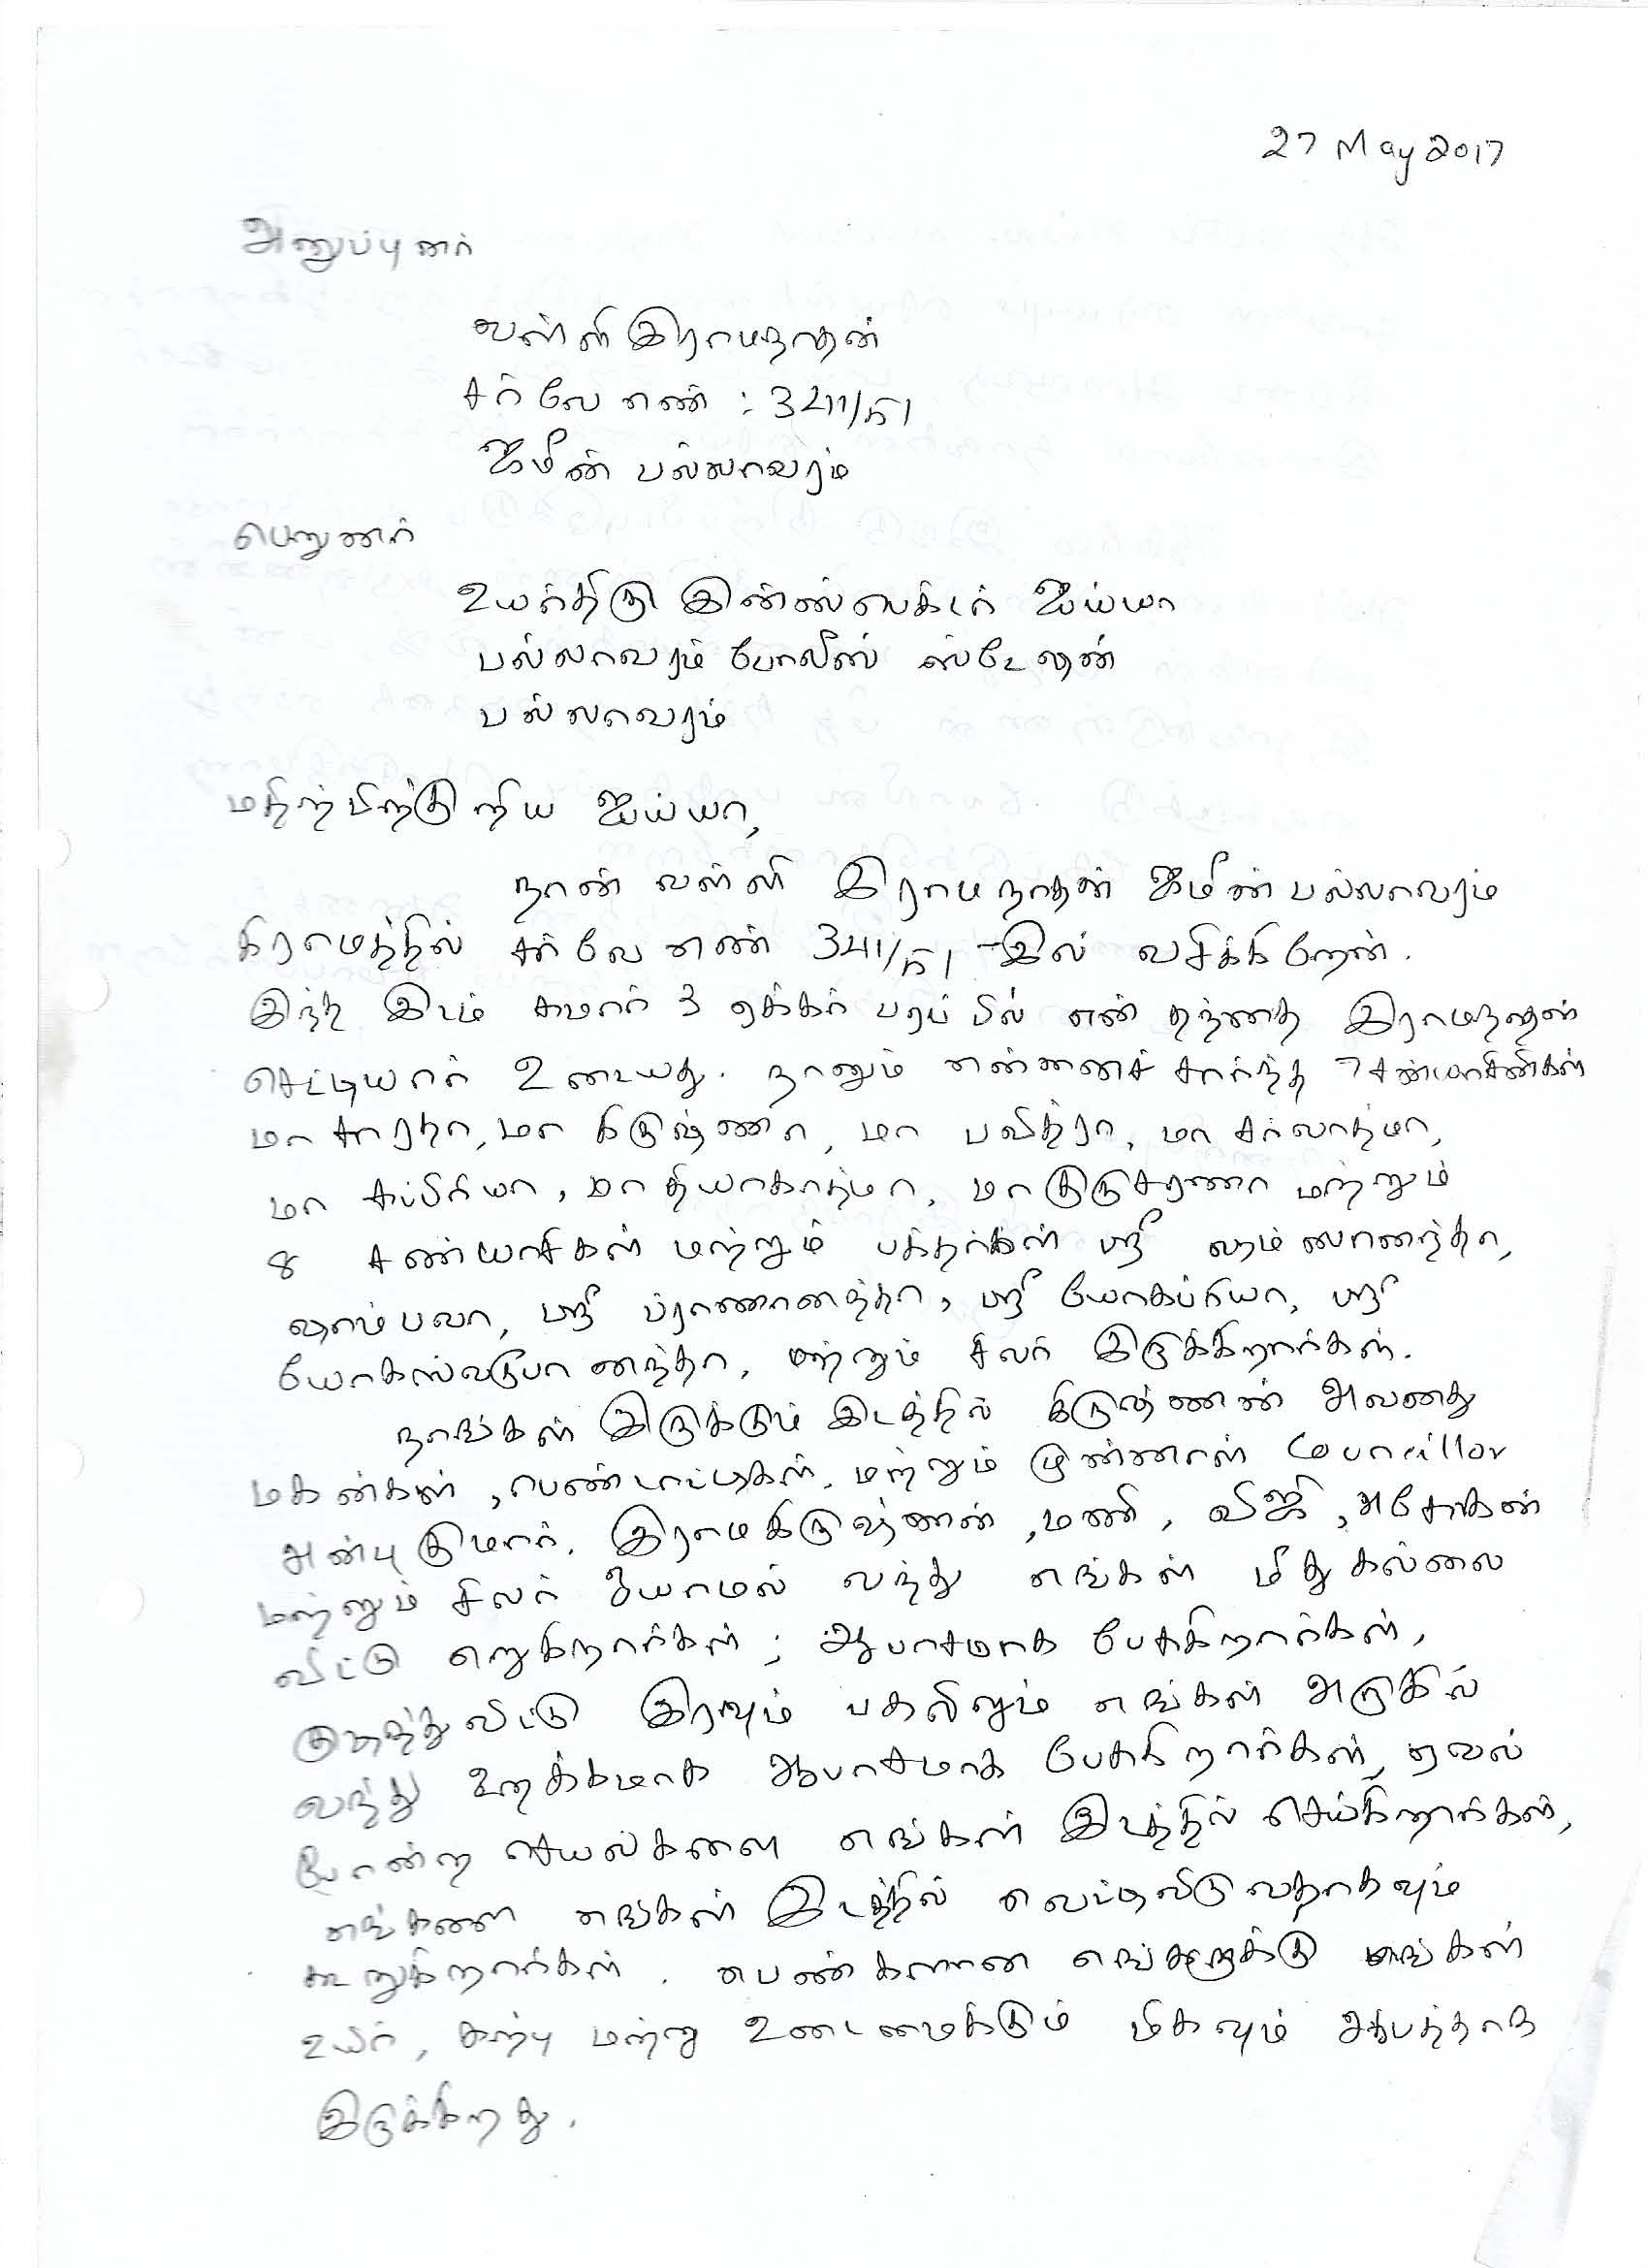 27 May 2017
அனுப்புனர்
வள்ளி இராமநாதன்
சர்வே எண் : 341/51
ஜமீன் பல்லாவரம்
பெறுனர்
உயர்திரு இன்ஸ்பெக்டர் ஐய்யா
பல்லாவரம் போலீஸ் ஸ்டேஷன்
பல்லாவரம்
மதிற்பிற்குறிய ஐய்யா,
நான் வள்ளி இராமநாதன் ஜமீன் பல்லாவரம்
கிராமத்தில் சர்வே எண் 341/51 -இல் வசிக்கிறேன்.
இந்த இடம் சுமார் 3 ஏக்கர் பரப்பில் என் தந்தை இராமநாதன்
செட்டியார் உடையது. நானும் என்னைச் சார்ந்த 7 சன்யாசினிகள்
மா சாரதா, மா கிருஷ்ணா, மா பவித்ரா, மா சர்வாத்மா,
மா சுப்ரியா, மா தியாகாத்மா, மா குருசரணா மற்றும்
8 சண்யாசிகள் மற்றும் பக்தர்கள் ஸ்ரீ
ஷாம்பவா, ஸ்ரீ ப்ராணானந்தா, ஸ்ரீ யோகப்ரியா, ஸ்ரீ
யோகஸ்வரூபானந்தா, மற்றும் சிலர் இருக்கிறார்கள்.
நாங்கள் இருக்கும் இடத்தில் கிருஷ்ணன் அவனது
மகன்கள், பெண்டாட்டிகள், மற்றும் முன்னாள் Councillor
அன்புகுமார், இராமகிருஷ்ணன், மணி, விஜி, அசோகன்
மற்றும் சிலர் வந்து எங்கள் மீது கல்லை
விட்டு எறுகிறார்கள்; ஆபாசமாக பேசுகிறார்கள்,
குடித்துவிட்டு இரவும் பகலிலும் எங்கள் அருகில்
வந்து உரக்கமாக ஆபாசமாக பேசுகிறார்கள், ஏவல்
போன்ற செயல்களை எங்கள் இடத்தில் செய்கிறார்கள்,
எங்களை எங்கள் இடத்தில் வெட்டிவிடுவதாகவும்
கூறுகிறார்கள். பெண்களான எங்களுக்கு எங்கள்
உயிர், கற்பு மற்று உடைமைக்கும் மிகவும் ஆபத்தாக
இருக்கிறது.